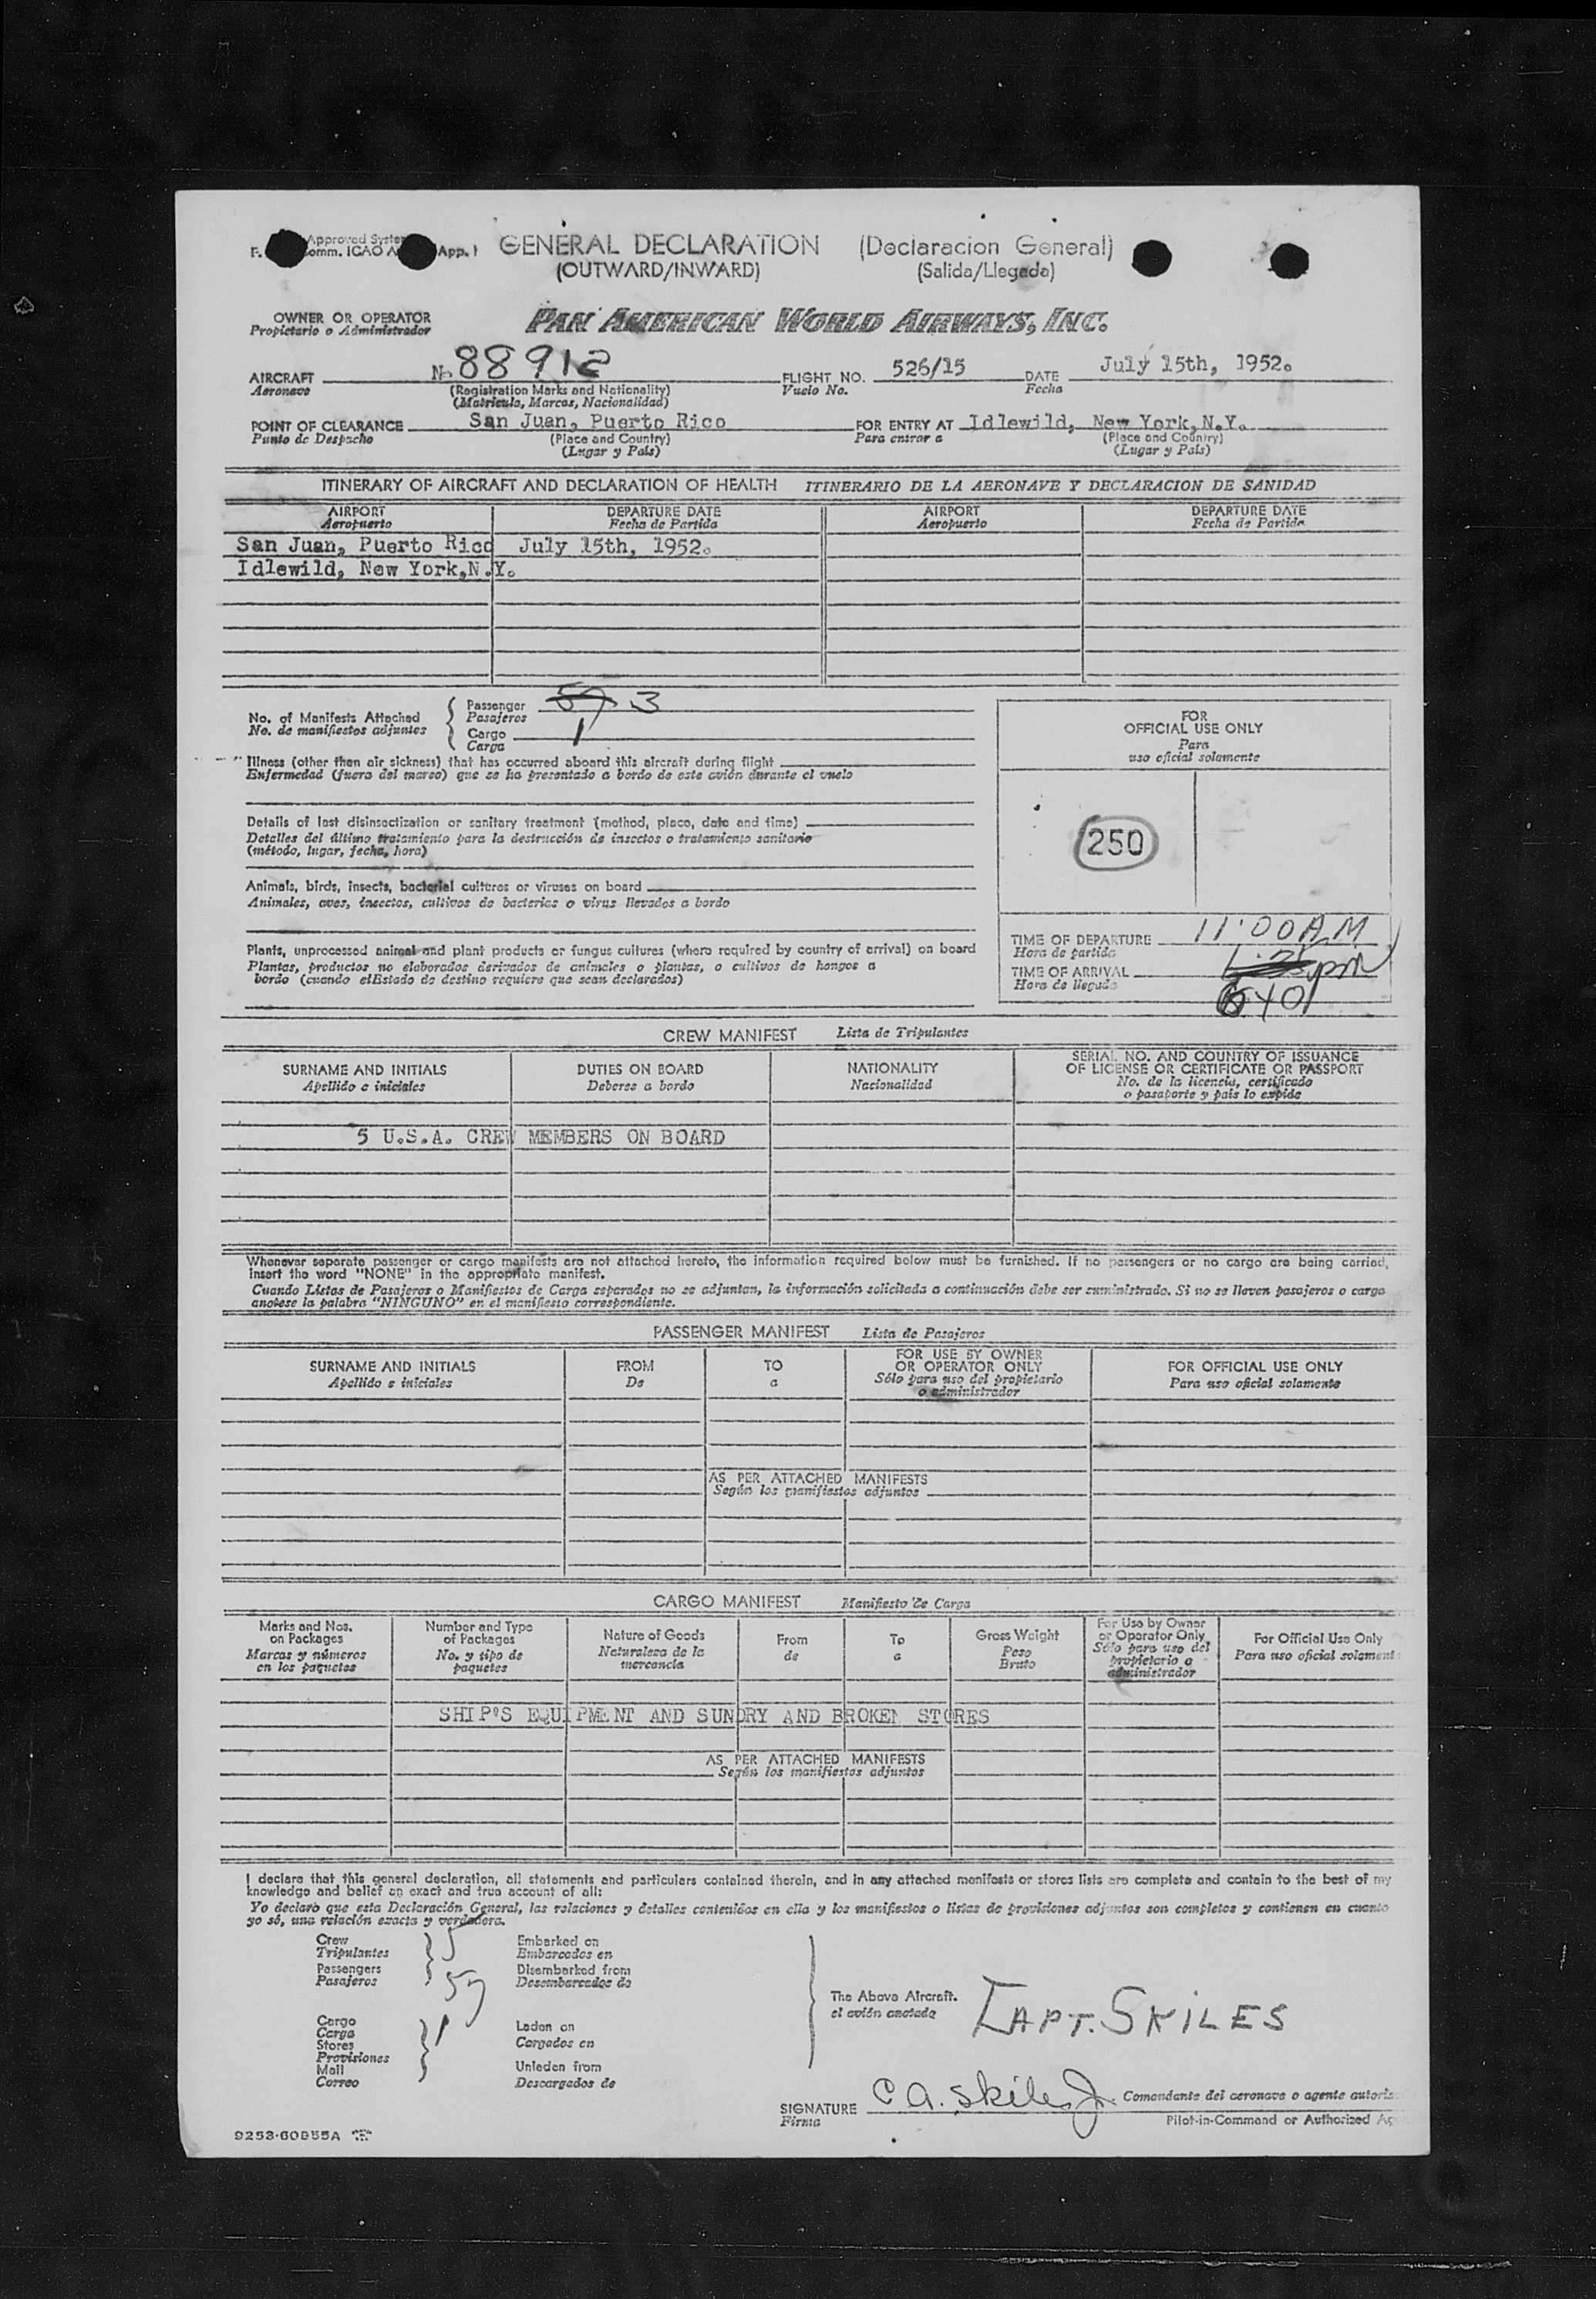 F. Approved System
Comm. ICAO A App. I
GENERAL DECLARATION (Declaracion General)
(OUTWARD/INWARD) (Salida/Llegada)
OWNER OR OPERATOR
Propietario o Administrador
PAN AMERICAN WORLD AIRWAYS, INC.
AIRCRAFT No 88912 FLIGHT NO. 526/15 DATE July 15th, 1952.
Aeronave (Registration Marks and Nationality) Vuelo No. Fecha
(Matricula, Marcas, Nacionalidad)
POINT OF CLEARANCE San Juan, Puerto Rico FOR ENTRY AT Idlewild, New York, N.Y.
Punto de Despacho (Place and Country) Para entrar a (Place and Country)
(Lugar y Pais) (Lugar y Pais)
ITINERARY OF AIRCRAFT AND DECLARATION OF HEALTH ITINERARIO DE LA AERONAVE Y DECLARACION DE SANIDAD
AIRPORT DEPARTURE DATE AIRPORT DEPARTURE DATE
Aeropuerto Fecha de Partida Aeropuerto Fecha de Partida
San Juan, Puerto Rico July 15th, 1952.
Idlewild, New York,N.Y.
No. of Manifests Attached
No. de manifiestos adjuntos
Passenger 57 3
Pasajeros
Cargo 1
Carga
FOR
OFFICIAL USE ONLY
Para
uso oficial solamente
Illness (other than air sickness) that has occurred aboard this aircraft during flight
Enfermedad (fuera del mareo) que se ha presentado a bordo de este avión durante el vuelo
Details of last disinsectization or sanitary treatment (method, place, date and time)
Detalles del último tratamiento para la destrucción de insectos o tratamiento sanitario
(método, lugar, fecha, hora)
250
Animals, birds, insects, bacterial cultures or viruses on board
Animales, aves, insectos, cultivos de bacterias o virus llevados a bordo
Plants, unprocessed animal and plant products or fungus cultures (where required by country of arrival) on board
Plantas, productos no elaborados derivados de animales o plantas, o cultivos de hongos a
bordo (cuando el Estado de destino requiere que sean declarados)
TIME OF DEPARTURE 11:00 A.M
Hora de partida
TIME OF ARRIVAL pm
Hora de llegada
CREW MANIFEST Lista de Tripulantes
SURNAME AND INITIALS DUTIES ON BOARD NATIONALITY SERIAL NO. AND COUNTRY OF ISSUANCE
OF LICENSE OR CERTIFICATE OR PASSPORT
Apellido e iniciales Deberes a bordo Nacionalidad No. de la licencia, certificado
o pasaporte y pais lo expide
5 U.S.A. CREW MEMBERS ON BOARD
Whenever separate passenger or cargo manifests are not attached hereto, the information required below must be furnished. If no passengers or no cargo are being carried,
insert the word "NONE" in the appropriate manifest.
Cuando Listas de Pasajeros o Manifiestos de Carga separados no se adjuntan, la información solicitada a continuación debe ser suministrada. Si no se lleven pasajeros o carga
anotese la palabra "NINGUNO" en el manifiesto correspondiente.
PASSENGER MANIFEST Lista de Pasajeros
SURNAME AND INITIALS FROM TO FOR USE BY OWNER
OR OPERATOR ONLY FOR OFFICIAL USE ONLY
Apellido e iniciales De a Sólo para uso del propietario
o administrador Para uso oficial solamente
AS PER ATTACHED MANIFESTS
Según los manifiestos adjuntos
CARGO MANIFEST Manifiesto de Carga
Marks and Nos.
on Packages
Marcas y números
en los paquetes
Number and Type
of Packages
No. y tipo de
paquetes
Nature of Goods
Naturaleza de la
mercancia
From
de
To
a
Gross Weight
Peso
Bruto
For Use by Owner
or Operator Only
Sólo para uso del
propietario o
administrador
For Official Use Only
Para uso oficial solament
SHIP'S EQUIPMENT AND SUNDRY AND BROKEN STORES
AS PER ATTACHED MANIFESTS
Según los manifiestos adjuntos
I declare that this general declaration, all statements and particulars contained therein, and in any attached manifests or stores lists are complete and contain to the best of my
knowledge and belief an exact and true account of all:
Yo declaro que esta Declaración General, las relaciones y detalles contenidos en ella y los manifiestos o listas de provisiones adjuntos son completos y contienen en cuanto
yo sé, una relación exacta y verdadera.
Crew 5 Embarked on
Tripulantes Embarcados en
Passengers 57 Disembarked from
Pasajeros Desembarcados de
Cargo
Carga
Stores 1
Provisiones
Mail
Correo
Laden on
Cargados en
Unladen from
Descargados de
The Above Aircraft.
el avión anotado
CAPT. SKILES
SIGNATURE C A. Skiles Jr. Comandante del aeronave o agente autoris
Firma Pilot-in-Command or Authorized Ag
9253-60955A